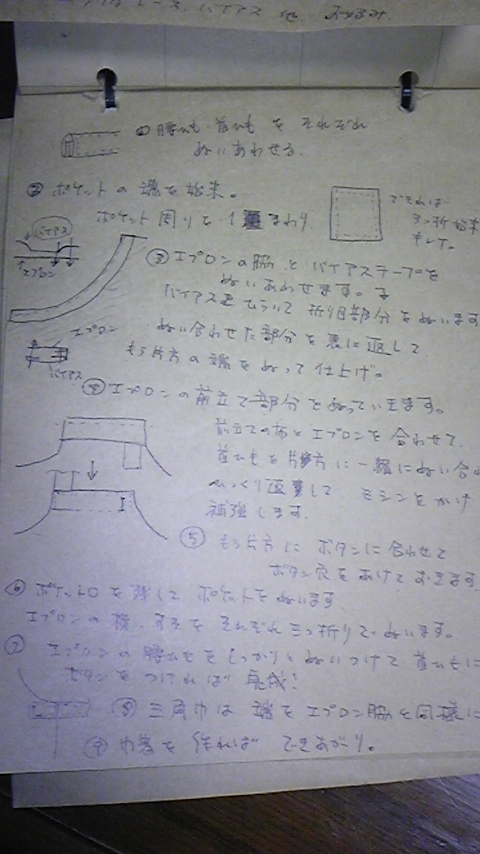 レース、バイアス 他
① 腰ひも・首ひも を それぞれ
ぬいあわせる。
② ポケット の 端を 始末。
ポケット 周りを 1 まわり
できれば
3ヶ所 始末
バイアス
エプロン
③ エプロンの脇 と バイアステープを
ぬいあわせます。
バイアスを ひらいて 折り目部分 を ぬいます
ぬい合わせた部分を 裏に 返して
もう片方の 端を ぬって 仕上げ。
エプロン
バイアス
④ エプロンの 前立て部分 を ぬっていきます。
前立ての布と エプロンを 合わせて、
首ひもを 片方に 一緒に ぬい合
ひっくり返して ミシンを かけ
補強します。
⑤ もう片方に ボタンに 合わせて
ボタン穴を あけて おきます
⑥ ポケット口 を 残して ポケットを ぬいます
エプロンの すそを それぞれ 三つ折りで ぬいます。
⑦ エプロンの 腰ひもを しっかりと ぬいつけて 首ひもに
ボタンを つければ 完成!
⑧ 三角巾は 端を エプロン脇と 同様に
⑨ 巾着を 作れば できあがり。